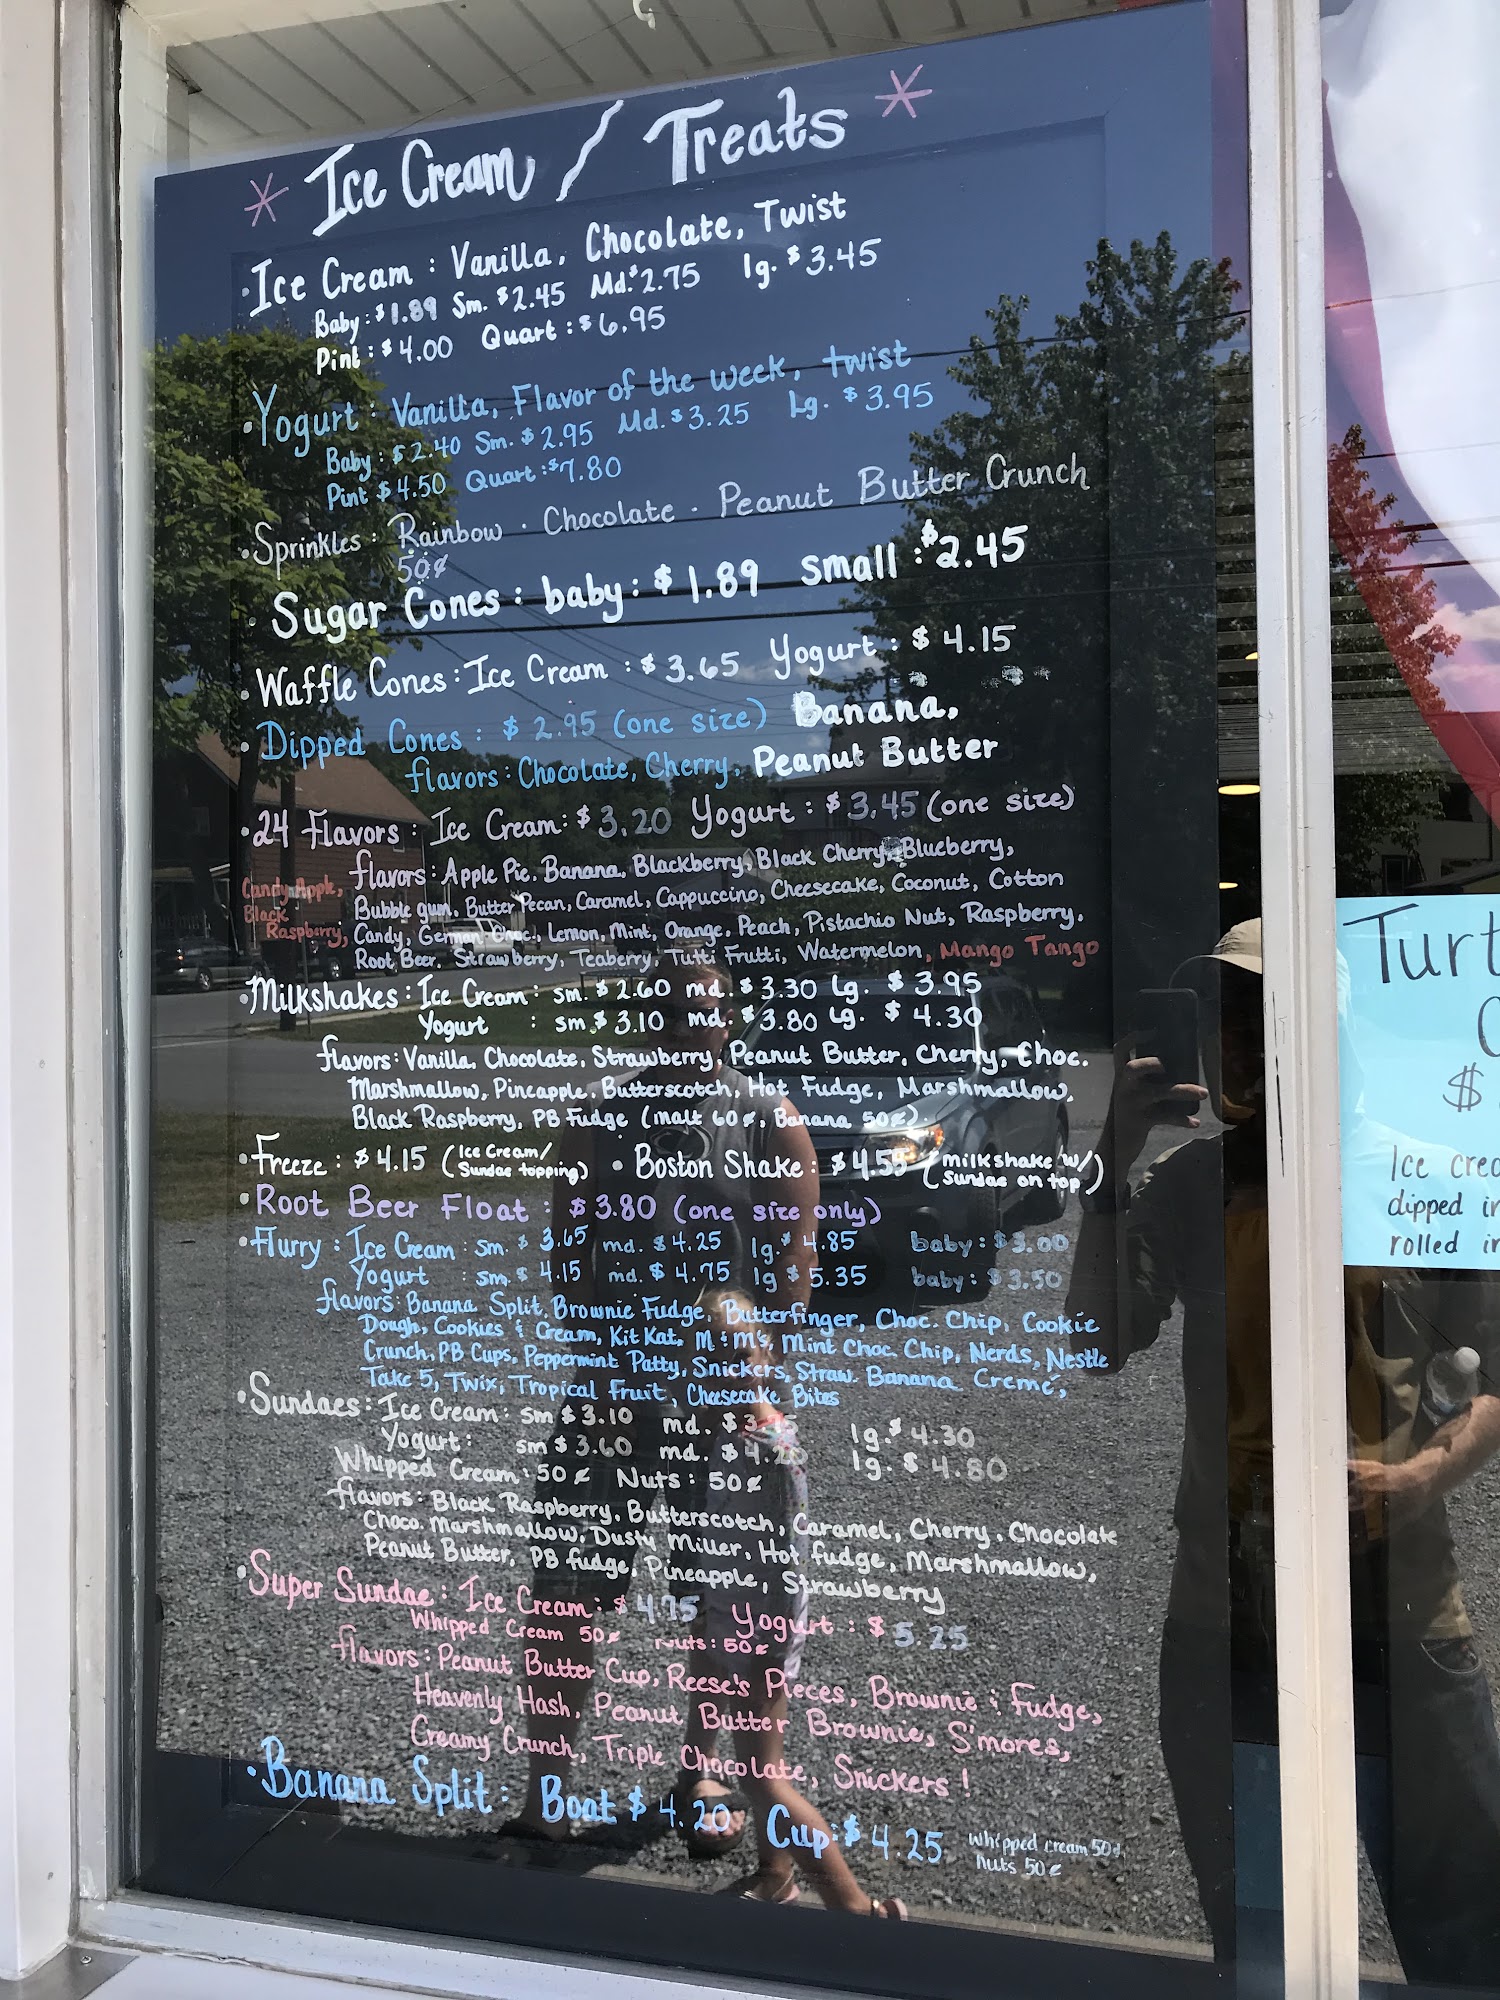 * Ice Cream / Treats *
• Ice Cream : Vanilla, Chocolate, Twist
Baby : $1.89 Sm. $2.45 Md. $2.75 lg. $3.45
Pint : $4.00 Quart : $6.95
• Yogurt : Vanilla, Flavor of the week, twist
Baby : $2.40 Sm. $2.95 Md. $3.25 Lg. $3.95
Pint $4.50 Quart : $7.80
• Sprinkles : Rainbow · Chocolate · Peanut Butter Crunch
50¢
• Sugar Cones : baby : $1.89 small : $2.45
• Waffle Cones : Ice Cream : $3.65 Yogurt : $4.15
• Dipped Cones : $2.95 (one size) Banana,
flavors : Chocolate, Cherry, Peanut Butter
• 24 Flavors : Ice Cream : $3.20 Yogurt : $3.45 (one size)
flavors : Apple Pie, Banana, Blackberry, Black Cherry, Blueberry,
Candy Apple, Bubble gum, Butter Pecan, Caramel, Cappuccino, Cheesecake, Coconut, Cotton
Black Raspberry, Candy, German Choc., Lemon, Mint, Orange, Peach, Pistachio Nut, Raspberry,
Root Beer, Strawberry, Teaberry, Tutti Frutti, Watermelon, Mango Tango
• Milkshakes : Ice Cream : sm. $2.60 md. $3.30 Lg. $3.95
Yogurt : sm $3.10 md. $3.80 Lg. $4.30
flavors : Vanilla, Chocolate, Strawberry, Peanut Butter, Cherry, Choc.
Marshmallow, Pineapple, Butterscotch, Hot Fudge, Marshmallow,
Black Raspberry, PB Fudge (malt 60¢, Banana 50¢).
• Freeze : $4.15 (Ice Cream/ Sundae topping) • Boston Shake : $4.55 (milkshake w/ Sundae on top)
• Root Beer Float : $3.80 (one size only)
• Flurry : Ice Cream : sm. $3.65 md. $4.25 lg. $4.85 baby : $3.00
Yogurt : sm $4.15 md. $4.75 lg $5.35 baby : $3.50
flavors : Banana Split, Brownie Fudge, Butterfinger, Choc. Chip, Cookie
Dough, Cookies & Cream, Kit Kat, M & M's, Mint Choc. Chip, Nerds, Nestle
Crunch, PB Cups, Peppermint Patty, Snickers, Straw. Banana Cremé,
Take 5, Twix, Tropical Fruit, Cheesecake Bites
• Sundaes : Ice Cream : sm $3.10 md. lg. $4.30
Yogurt : sm $3.60 md. lg. $4.80
Whipped Cream : 50¢ Nuts : 50¢
flavors : Black Raspberry, Butterscotch, Caramel, Cherry, Chocolate
Choco. Marshmallow, Dusty Miller, Hot fudge, Marshmallow,
Peanut Butter, PB fudge, Pineapple, Strawberry
• Super Sundae : Ice Cream : $4.75 Yogurt : $5.25
Whipped Cream 50¢ nuts : 50¢
flavors : Peanut Butter Cup, Reese's Pieces, Brownie & Fudge,
Heavenly Hash, Peanut Butter Brownie, S'mores,
Creamy Crunch, Triple Chocolate, Snickers !
• Banana Split : Boat $4.20 Cup : $4.25 whipped cream 50¢
nuts 50¢
Turt
C
$
Ice crea
dipped in
rolled in